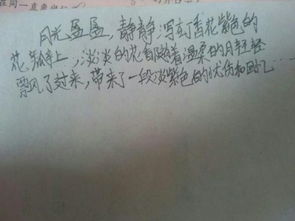 月光盈盈，静静泻到香花紫色的
花瓣上，淡淡的花香随着温柔的月轻轻
飘风了过来，带来了一段淡紫色的忧伤和回忆……